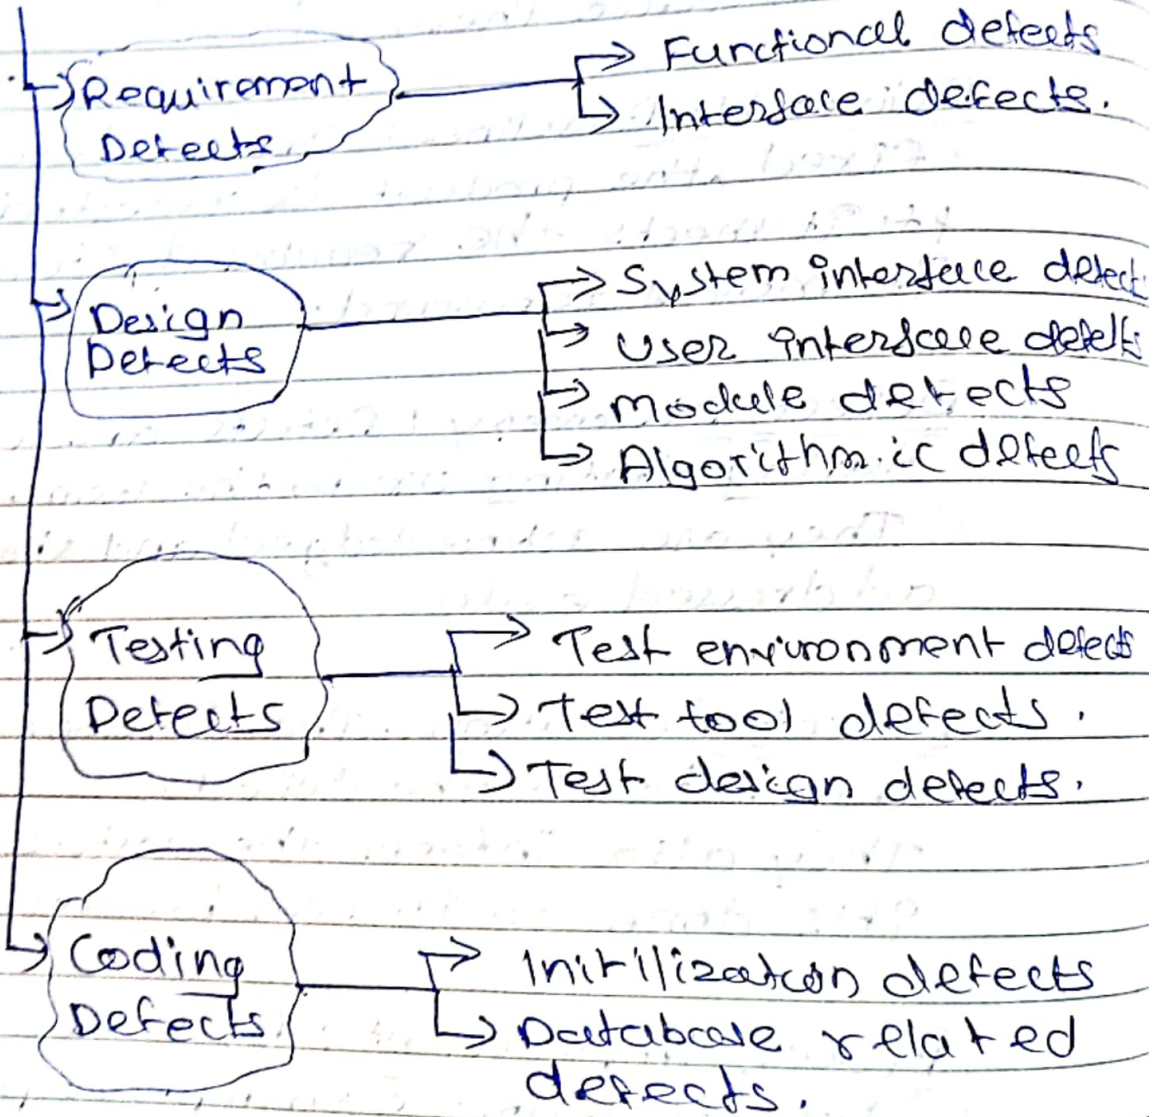 Requirement
Defects
Functional defects
Interface defects.
Design
Defects
System interface defect
User interface defects
Module defects
Algorithmic defects
Testing
Defects
Test environment defects
Test tool defects.
Test design defects.
Coding
Defects
Initilization defects
Database related
defects.